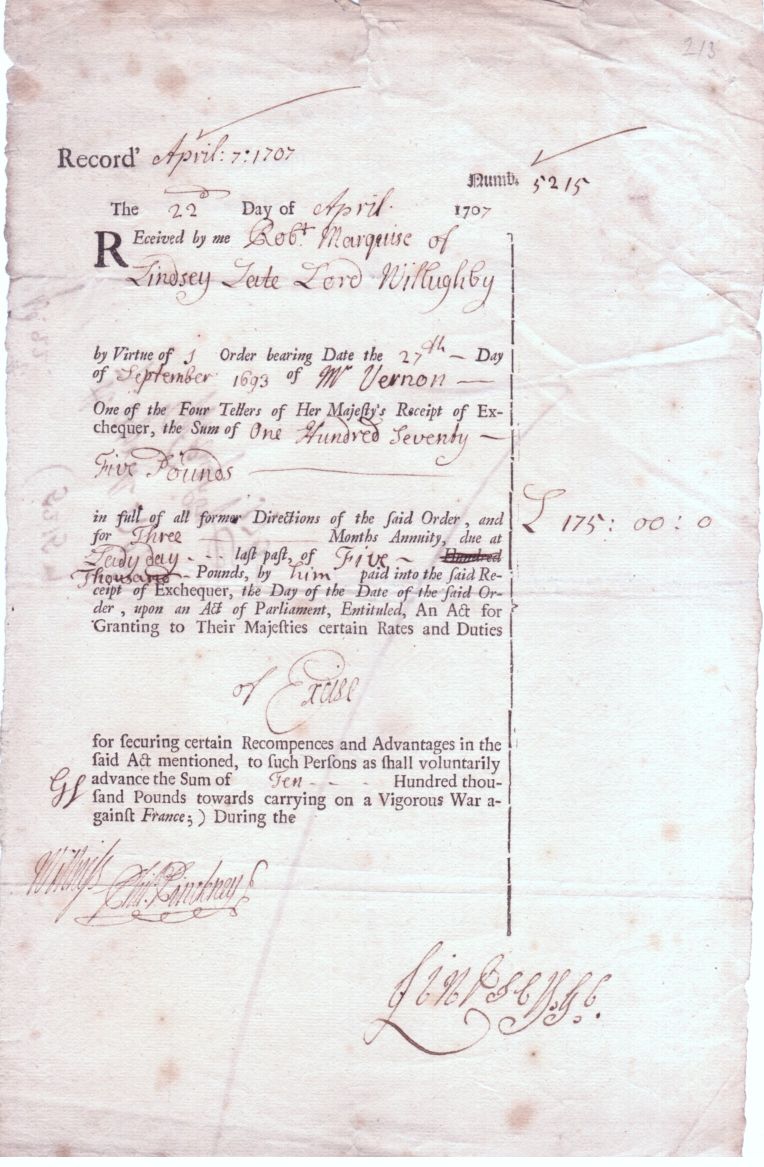 213
Record' April: 7: 1707
Numb. 5215
The 22d Day of April 1707
REceived by me Robt. Marquise of
Lindsey Late Lord Willughby
by Virtue of 1 Order bearing Date the 27th Day
of September 1693 of Mr Vernon
One of the Four Tellers of Her Majeſty's Receipt of Ex-
chequer, the Sum of One Hundred Seventy
Five Pounds
in full of all former Directions of the ſaid Order, and
for Three Months Annuity, due at
Ladyday laſt paſt, of Five Hundred
Thousand Pounds, by him paid into the ſaid Re-
ceipt of Exchequer, the Day of the Date of the ſaid Or-
der, upon an Act of Parliament, Entituled, An Act for
Granting to Their Majeſties certain Rates and Duties
£ 175: 00: 0
of Excise
for ſecuring certain Recompences and Advantages in the
ſaid Act mentioned, to ſuch Perſons as ſhall voluntarily
advance the Sum of Ten Hundred thou-
ſand Pounds towards carrying on a Vigorous War a-
gainſt France;) During the
Witness Pinckney
Lindsey